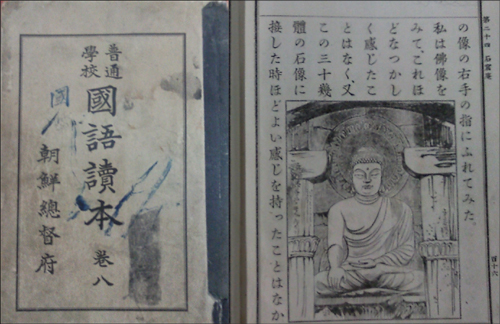 普通
學校
國語讀本 卷八
朝鮮總督府
國
第二十四 石窟庵
の像の右手の指にふれてみた。
私は佛像を
みて、これほ
どなつかし
く感じたこ
とはなく、又
この三十幾
體の石像に
接した時ほどよい感じを持つたことはなか
百十六